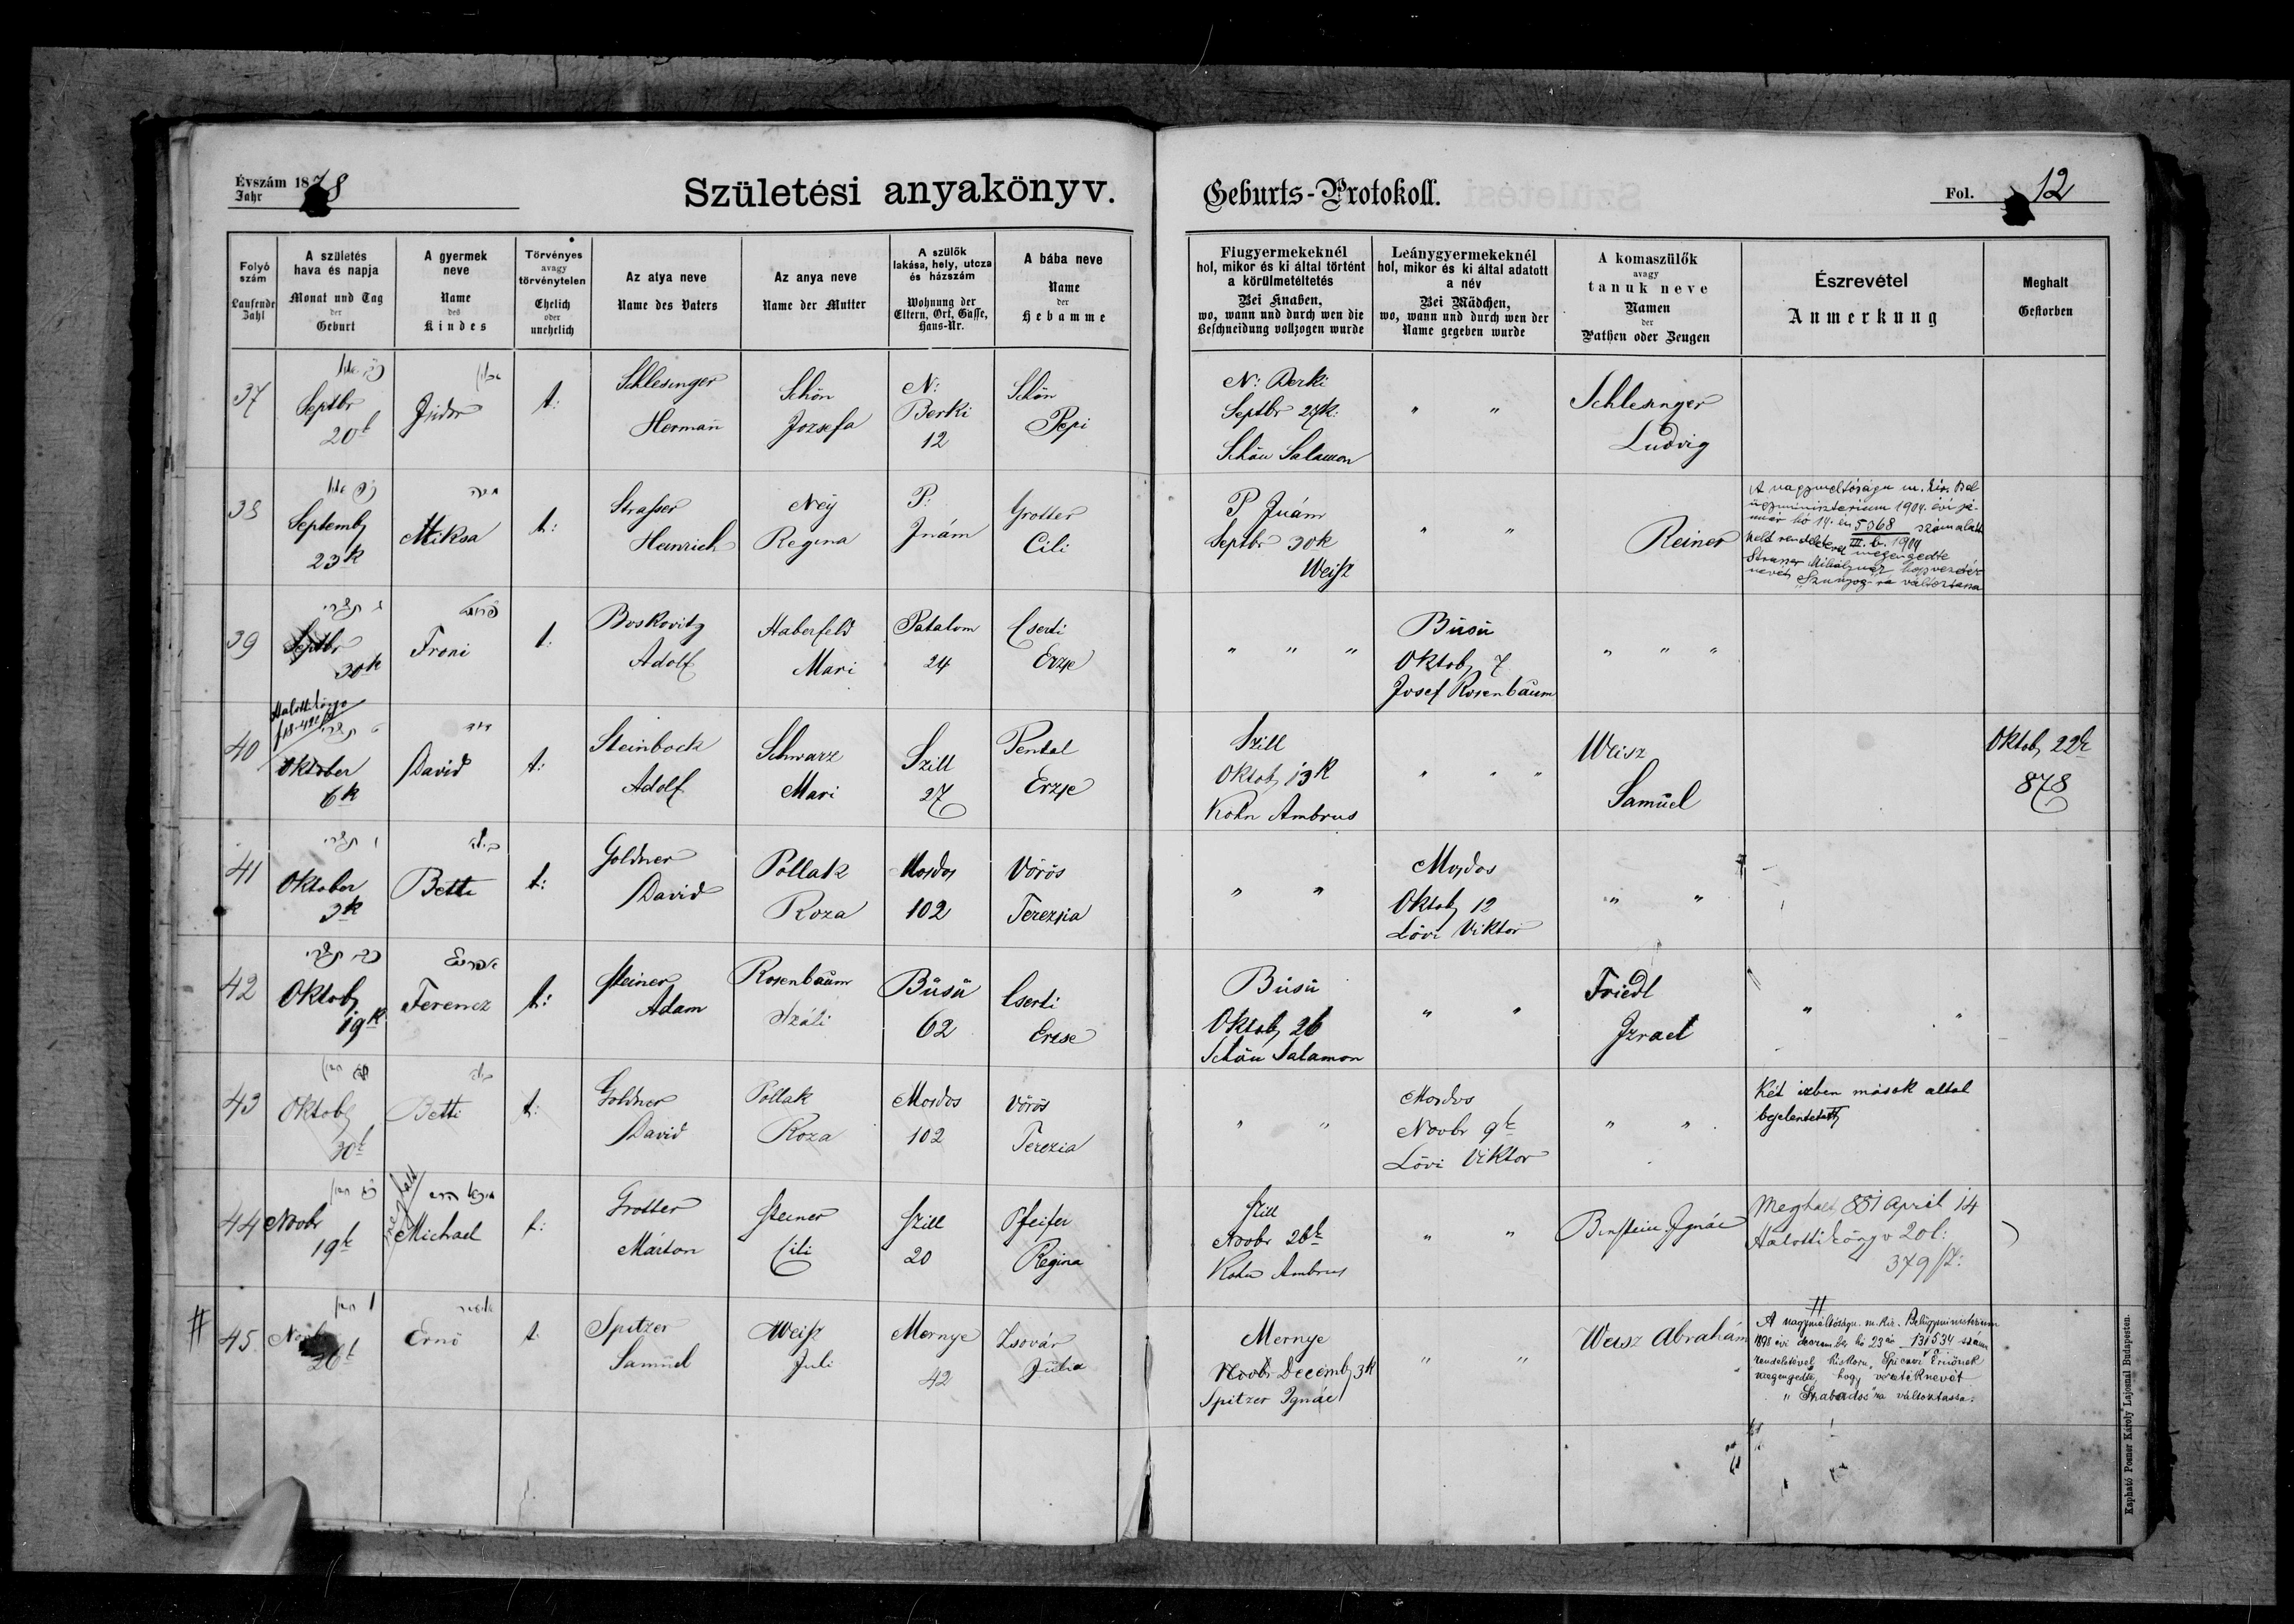 Évszám 1878
Jahr
Születési anyakönyv.
Geburts-Protokoll.
Fol. 12
Folyó szám
Laufende Zahl
A születés hava és napja
Monat und Tag der Geburt
A gyermek neve
Name des Kindes
Törvényes avagy törvénytelen
Ehelich oder unehelich
Az atya neve
Name des Vaters
Az anya neve
Name der Mutter
A szülők lakása, hely, utcza és házszám
Wohnung der Eltern, Ort, Gasse, Haus-Nr.
A bába neve
Name der Hebamme
Fiugyermekeknél hol, mikor és ki által történt a körülmetéltetés
Bei Knaben, wo, wann und durch wen die Beschneidung vollzogen wurde
Leánygyermekeknél hol, mikor és ki által adatott a név
Bei Mädchen, wo, wann und durch wen der Name gegeben wurde
A komaszülők avagy tanuk neve
Namen der Pathen oder Zeugen
Észrevétel
Anmerkung
Meghalt
Gestorben
37
Septbr
20k
t:
Schlesinger
Hermañ
Schön
Jozsefa
N:
Berki
12
Schön
Pepi
N: Berki
Septbr 27k:
Schön Salamon
" "
Schlesinger
Ludvig
38
Septemb
23k
Miksa
t:
Strasser
Heinrich
Ney
Regina
P:
Jnám
Grotter
Cili
P Jnám
Septbr 30k
Weisz
" "
Reiner
A nagyméltóságu m. kir. Bel
ügyministerium 1904. évi ja-
nuár hó 14. én 5368 szám alatt
III. b. 1904
kelt rendeletével megengedte
Strasser Miksának hogy vezeték
nevét "Szunyog" ra változtassa
39
Septbr
30k
Froni
t:
Boskovitz
Adolf
Haberfeld
Mari
Patalom
24
Cserti
Erzse
" " "
Büsü
Oktob 7
Josef Rosenbaum
" " "
Halotti könyv
40
Oktober
6k
David
דוד
t:
Steinbock
Adolf
Schwarz
Mari
Szill
27
Erzse
Szill
Oktob 13k
Kohn Ambrus
" " "
Weisz
Samuel
Oktob 22k
878
41
Oktober
3k
Betti
t:
Goldner
David
Pollak
Roza
Mosdos
102
Vörös
Terezsia
" "
Mosdos
Oktob 12
Lövi Viktor
" "
42
Oktob
19k
Ferencz
t:
Steiner
Adam
Rosenbaum
Száli
Büsü
62
Cserti
Erzse
Büsü
Oktob 26
Schön Salamon
" "
Friedl
Jzrael
" "
43
Oktob
30k
Betti
t:
Goldner
David
Pollak
Roza
Mosdos
102
Vörös
Terezia
" "
Mosdos
Novbr 9k
Lövi Viktor
" "
Két izben mások által
bejelentetett
44
Novbr
19k
meghalt
Michael
t:
Grotter
Márton
Steiner
Cili
Szill
20
Pfeifer
Regina
Szill
Novbr 26k
Kohn Ambrus
" "
Bernstein Ignác
Meghalt 881 April 14
Halotti könyv 20 l:
379 sz:
#
45
Novbr
26k
Ernö
t.
Spitzer
Samuel
Weisz
Juli
Mernye
42
Zsovár
Julia
Mernye
Novbr Decemb 3k
Spitzer Ignác
" "
Weisz Abrahám
#
A nagyméltóságu m. kir. Belügyministerium
1898 évi deczember hó 23 án 131534 számu
rendeletével kiskoru Spiczer Ernönek
megengedte, hogy vezetéknevét
"Szabados" ra változtassa.
Kapható Posner Károly Lajosnál Budapesten.